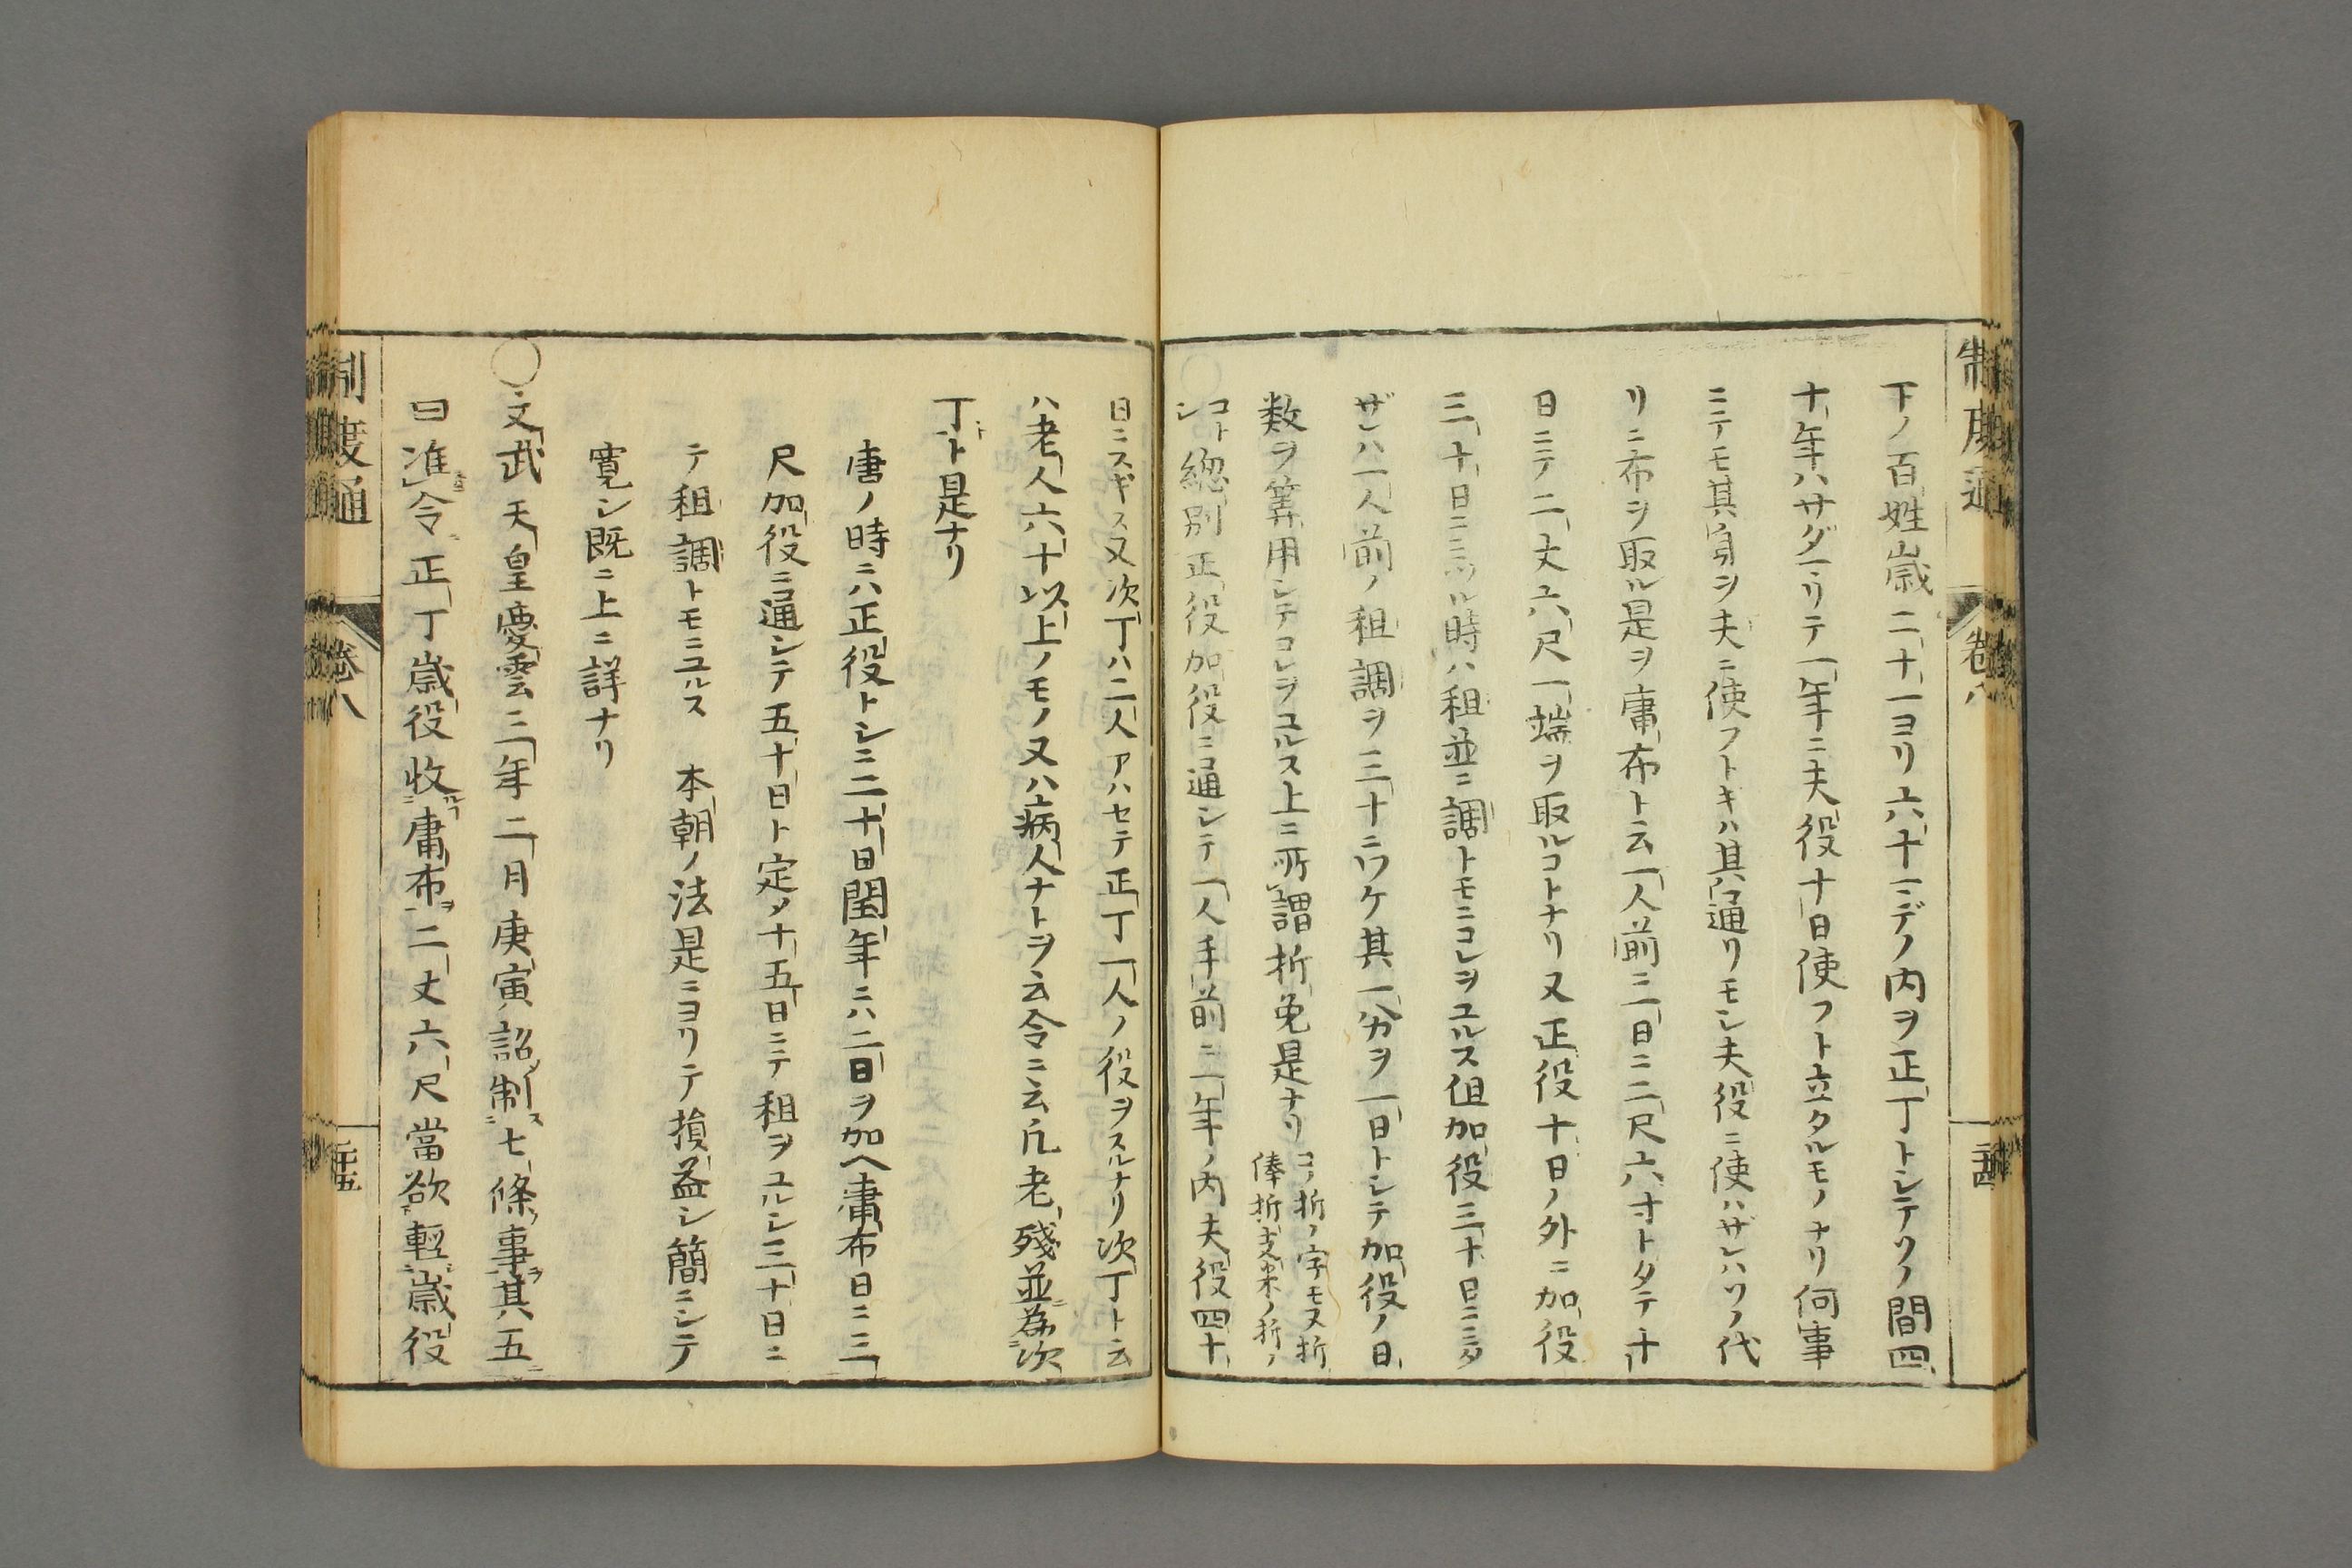 制度通
卷八
下ノ百姓歳二十一ヨリ六十マデノ内ヲ正丁トシテソノ間四
十年ハサダマリテ一年ニ夫役十日使フト立タルモノナリ何事
ニテモ其身ヲ夫ニ使フトキハ其通リモシ夫役ニ使ハザレハソノ代
リニ布ヲ取ル是ヲ庸布ト云一人前一日ニ二尺六寸トタテ十
日ニテ二丈六尺一端ヲ取ルコトナリ又正役十日ノ外ニ加役
三十日ニミツル時ハ租並ニ調トモニコレヲユルス但加役三十日ニミタ
ザレハ一人前ノ租調ヲ三十ニワケ其一分ヲ一日トシテ加役ノ日
数ヲ筭用シテコレヲユルス上ニ所謂折免是ナリ
コノ折ノ字モ又折
俸折支米ノ折ノ
コト
シ
總別正役加役ニ通シテ一人手前一年ノ内夫役四十
日ニスギス又次丁ハ二人アハセテ正丁一人ノ役ヲスルナリ次丁ト云
ハ老人六十以上ノモノ又ハ病人ナトヲ云令ニ云凡老殘並為次
丁ト是ナリ
唐ノ時ニハ正役トシニ二十日閏年ニハ二日ヲ加ヘ庸布日ニ三
尺加役ニ通シテ五十日ト定メ十五日ニテ租ヲユルシ三十日ニ
テ租調トモニユルス 本朝ノ法是ニヨリテ損益シ簡ニシテ
寛シ既ニ上ニ詳ナリ
○文武天皇慶雲三年二月庚寅詔制ス七條事ヲ其五
曰准令正丁歳役收庸布ヲ二丈六尺當欲輕歳役
制度通
卷八
二十五